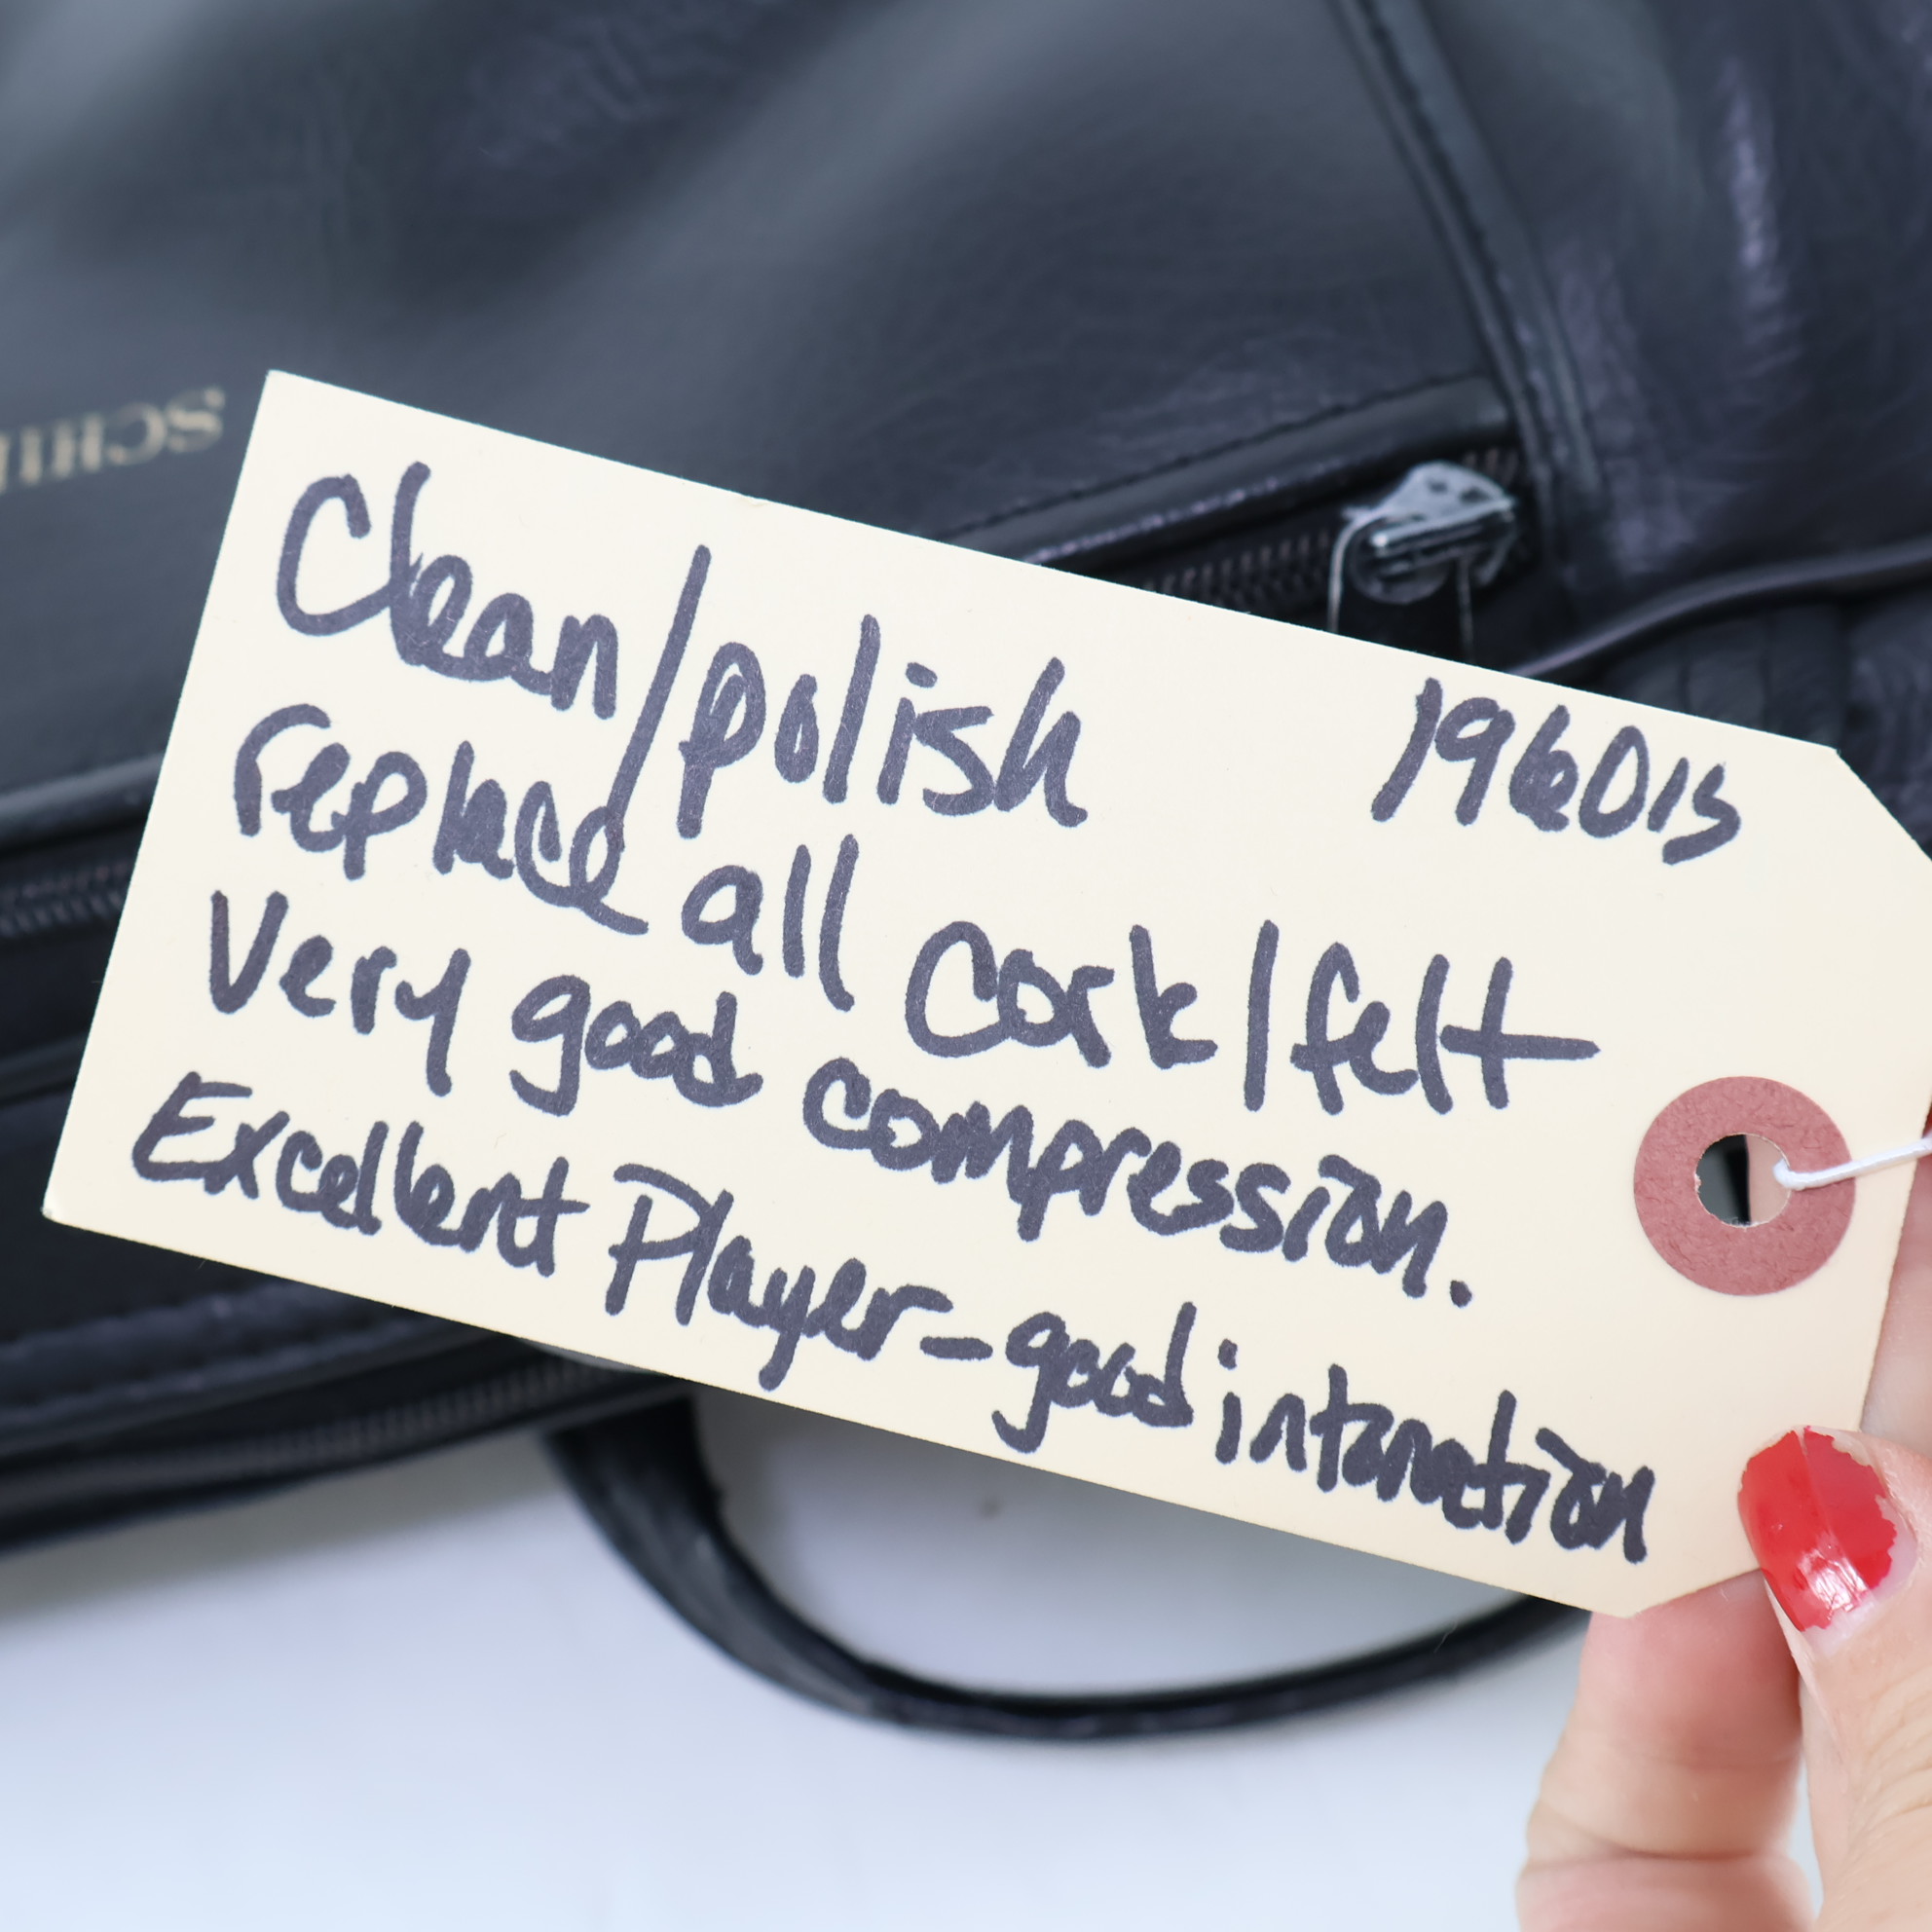 SCHI
Clean/polish 1960's
replace all Cork/felt
Very good compression.
Excellent Player-good intonation